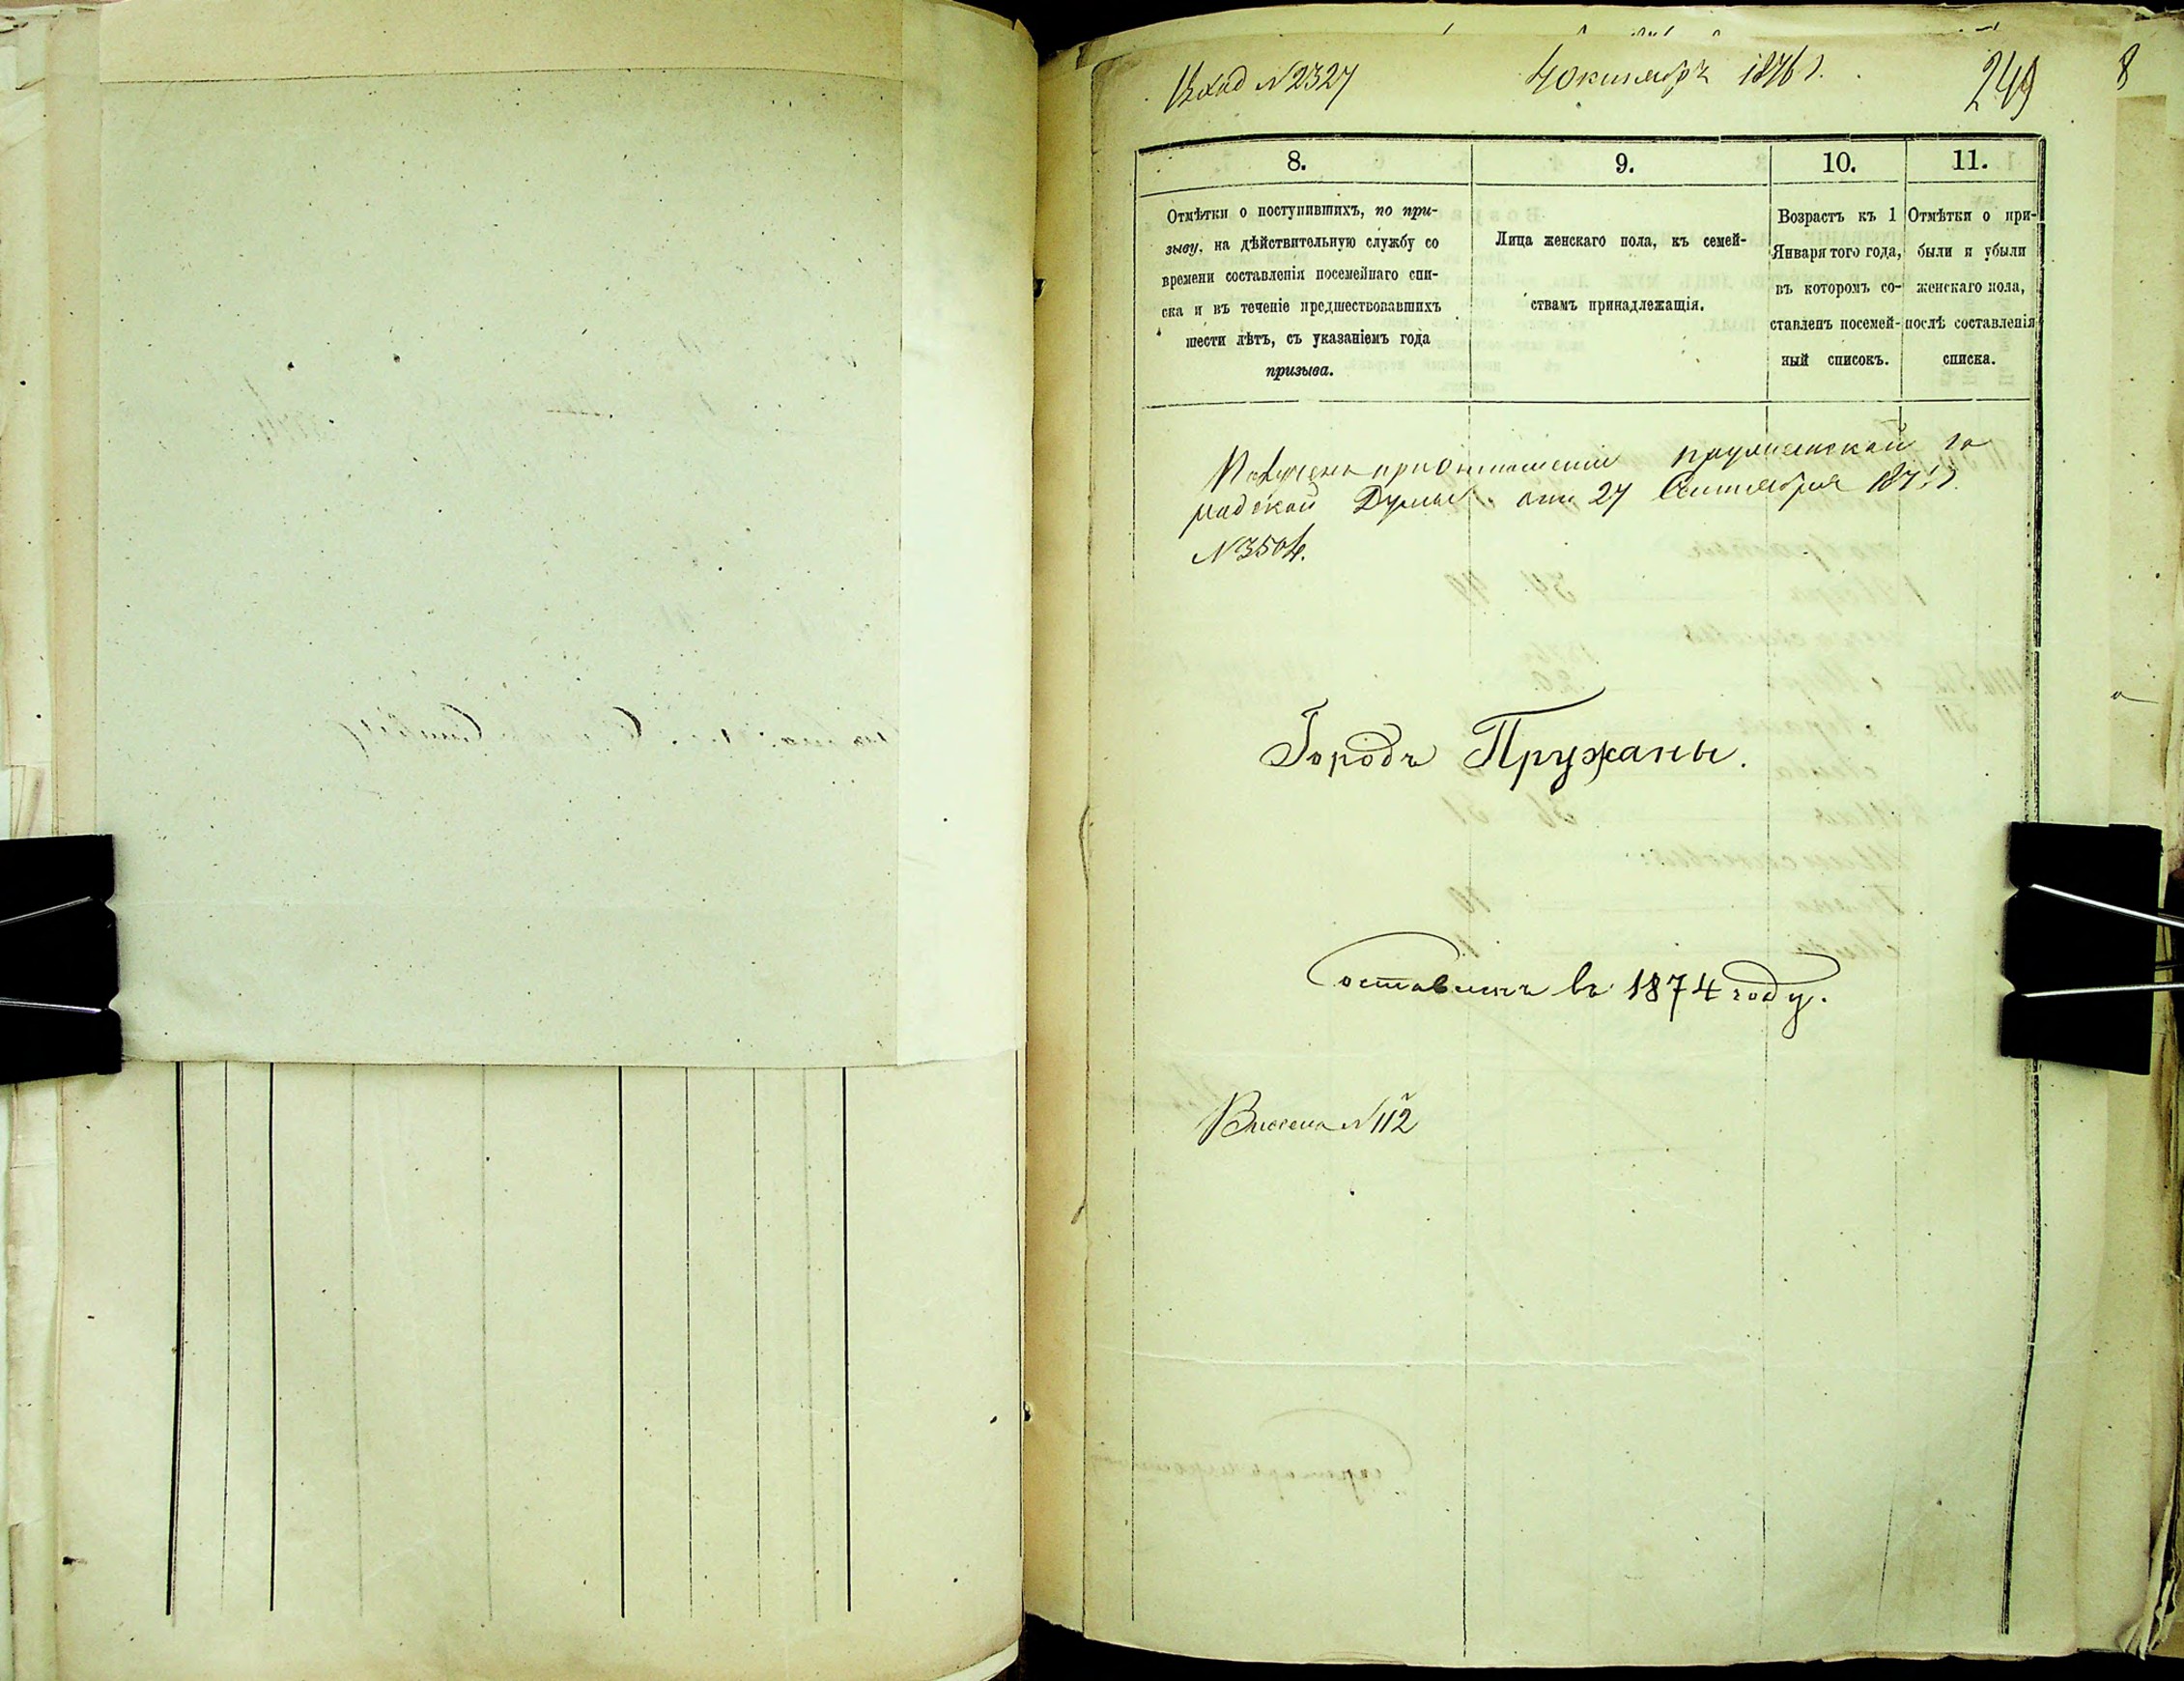 Вход №2327 4 Октября 1876 г. 249
8
8. 9. 10. 11.
Отмѣтки о поступившихъ, по при-
зыву, на дѣйствительную службу со
времени составленія посемейнаго спи-
ска и въ теченіе предшествовавшихъ
шести лѣтъ, съ указаніемъ года
призыва.
Лица женскаго пола, къ семей-
ствамъ принадлежащія.
Возрастъ къ 1
Января того года,
въ которомъ со-
ставленъ посемей-
ный списокъ.
Отмѣтки о при-
были и убыли
женскаго пола,
послѣ составленія
списка.
Получена при отношеніи го
родской Думы отъ 27 Сентября
№3504.
Городъ Пружаны.
Составленъ въ 1874 году.
№112